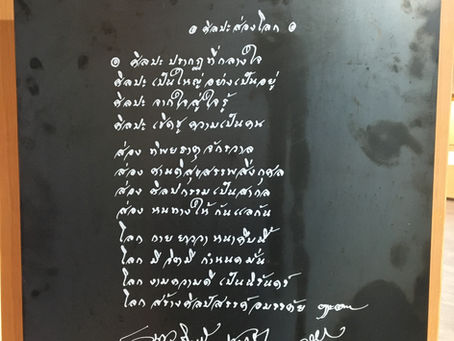 ๏ ศิลปะส่องโลก ๏
๏ ศิลปะ ปรากฏ ที่กลางใจ
ศิลปะ เป็นใหญ่ อย่างเป็นอยู่
ศิลปะ จากใจ สู่ใจ รู้
ศิลปะ เชิดชู ความเป็นคน
ส่อง ทิพยธาตุ จักรวาล
ส่อง ศานติสุข สรรพสิ่งกุศล
ส่อง ศิลปกรรม เป็นสากล
ส่อง หนทาง ให้ กันแลกัน
โลก กาย ยาววา หนาคืบนี้
โลก มี มี กำหนด มั่น
โลก งามความดี เป็นนิรันดร์
โลก สร้างศิลป์สรรค์ อมรรตัย